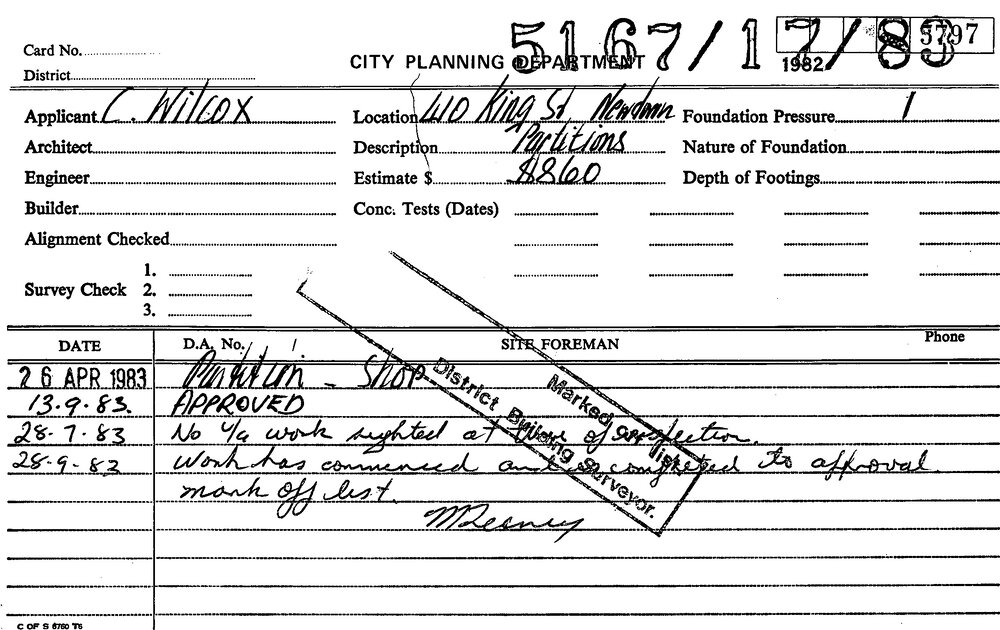 5167/17/83
5797
Card No.
CITY PLANNING DEPARTMENT
1982
District
Applicant C. Wilcox Location 410 King St, Newtown Foundation Pressure
Architect Description Partitions Nature of Foundation
Engineer Estimate $ $860 Depth of Footings
Builder Conc. Tests (Dates)
Alignment Checked
1.
Survey Check 2.
3.
DATE D.A. No. / / SITE FOREMAN Phone
26 APR 1983 Partition - Shop
13.9.83. APPROVED
28.7.83 No work sighted at time of inspection.
28.9.83 Work has commenced and is completed to approval.
mark off list.
Marked off list
District Building Surveyor.
C OF S 6760 T6